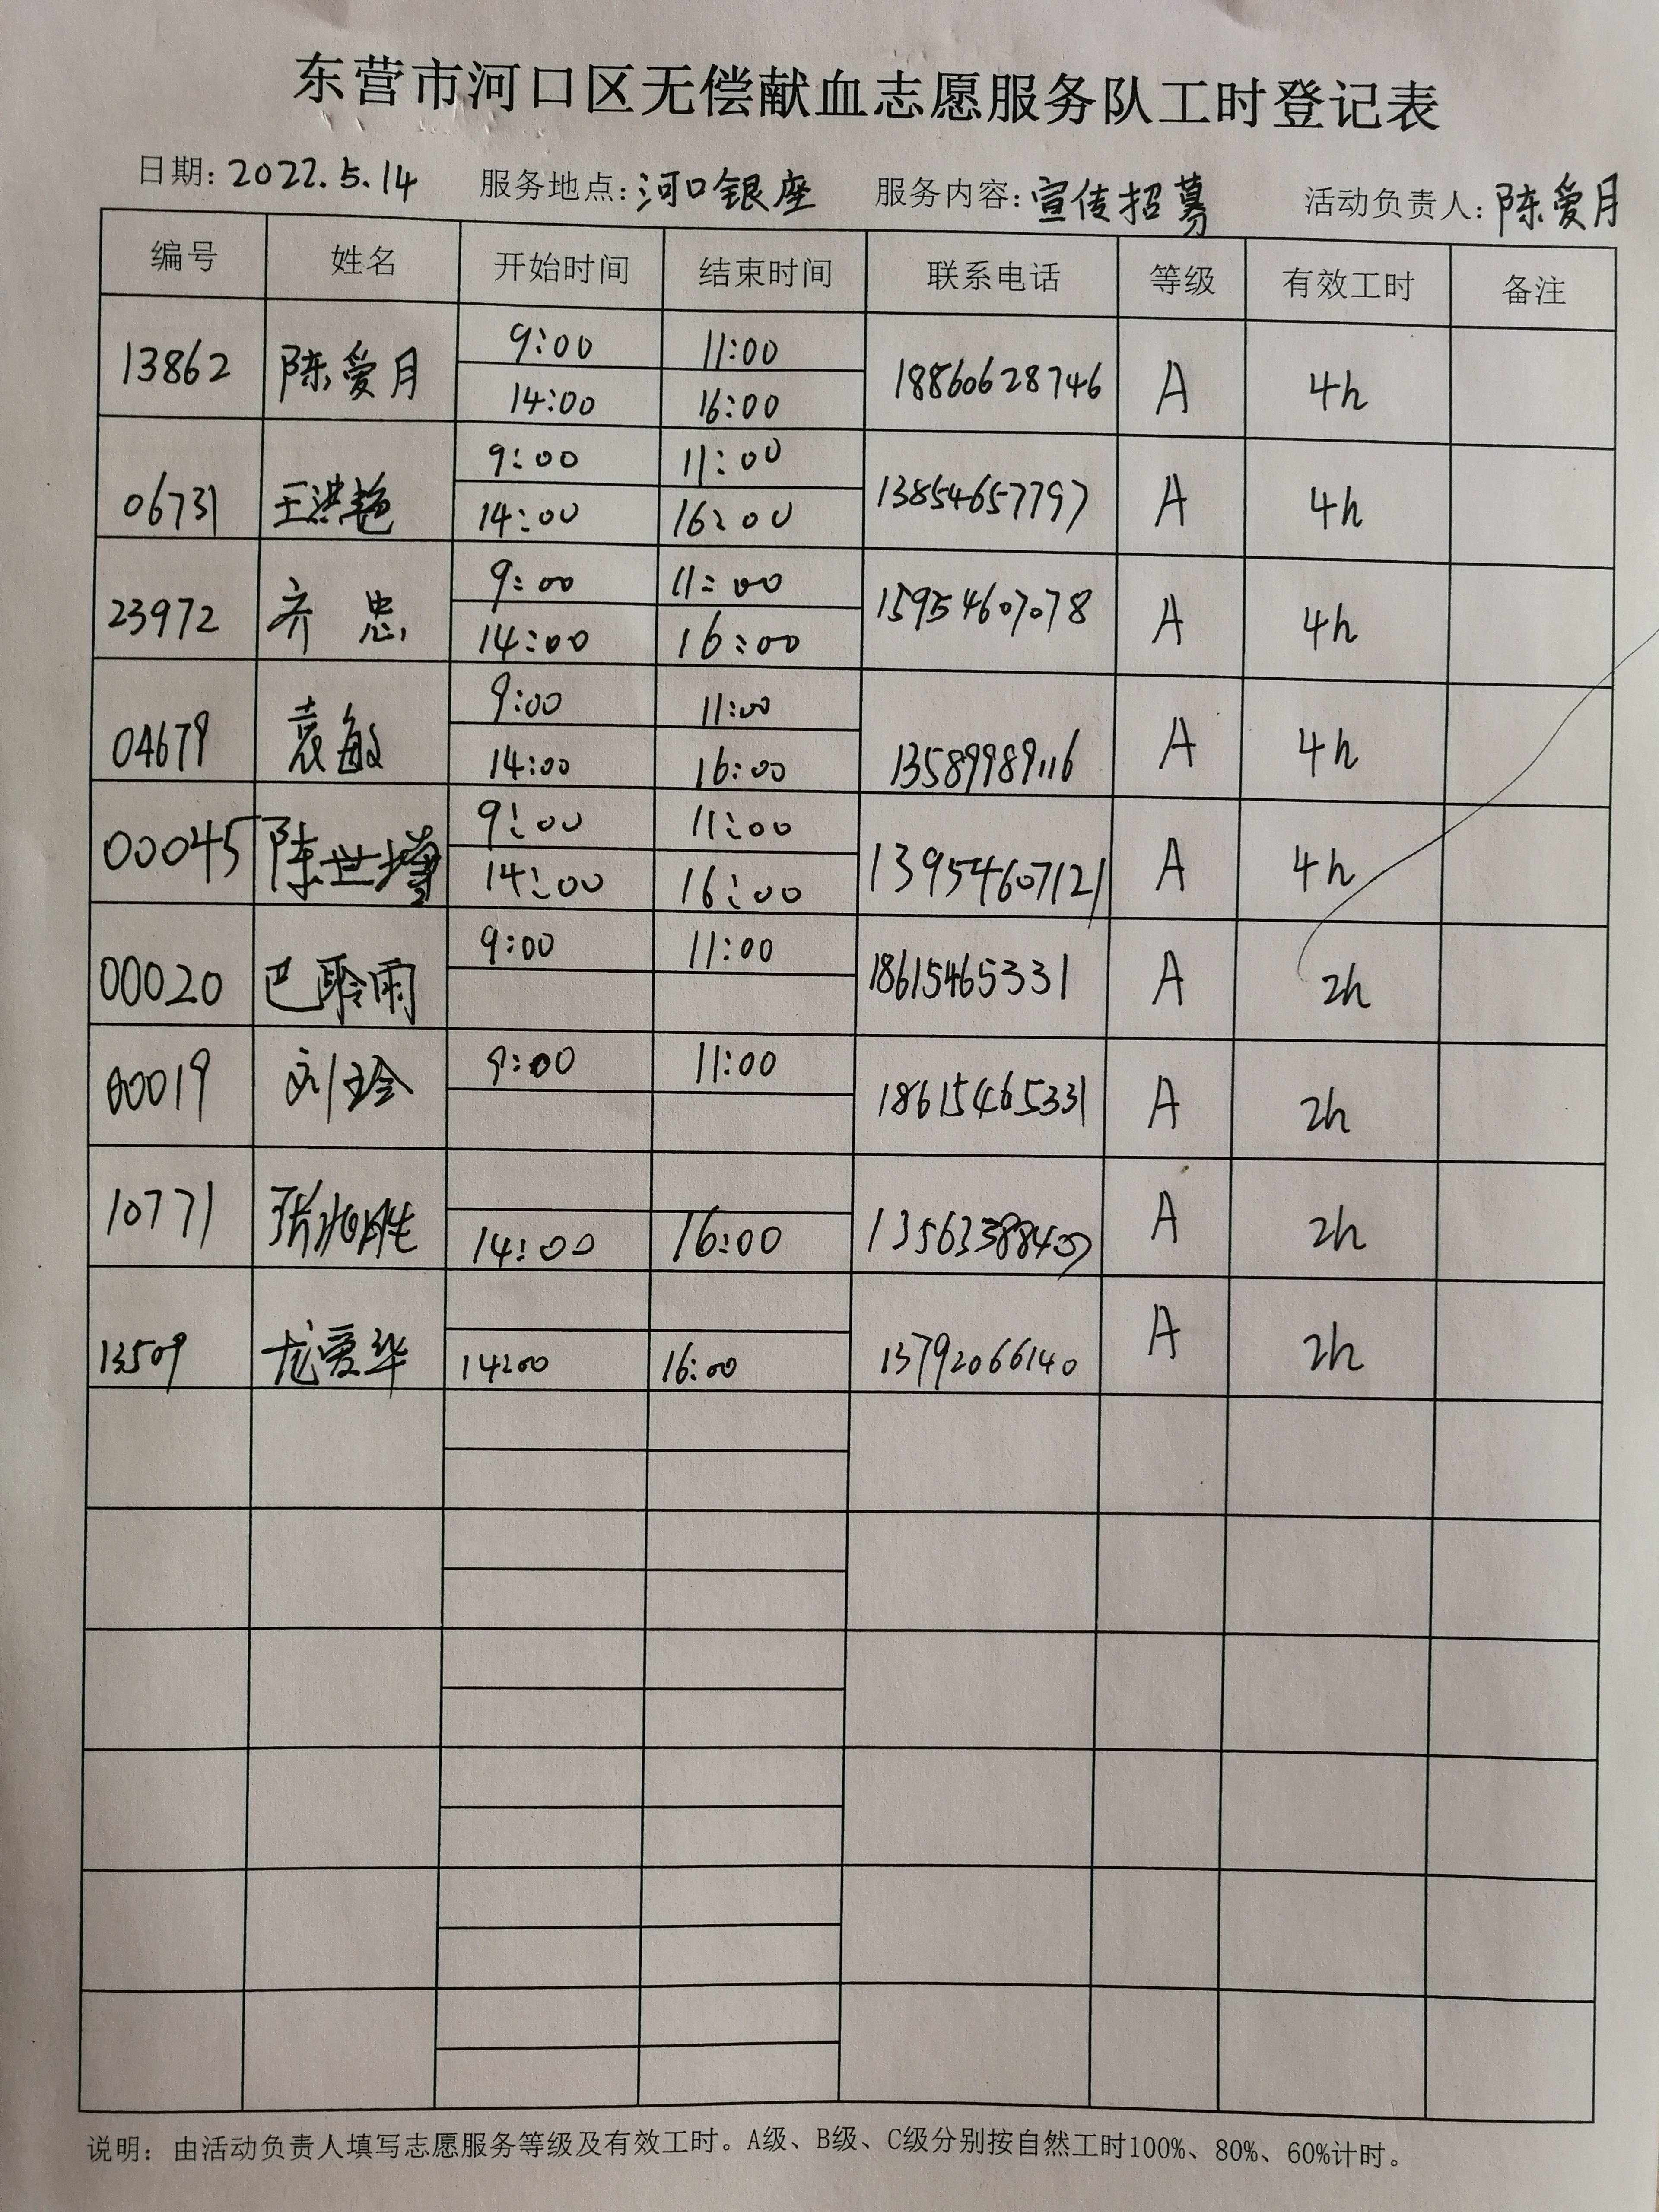 东营市河口区无偿献血志愿服务队工时登记表
日期: 2022.5.14 服务地点: 河口银座 服务内容: 宣传招募 活动负责人: 陈爱月
编号 姓名 开始时间 结束时间 联系电话 等级 有效工时 备注
9:00 11:00
13862 陈爱月 18860628746 A 4h
14:00 16:00
9:00 11:00
06731 王洪艳 13854657797 A 4h
14:00 16:00
9:00 11:00
23972 齐忠 15954607078 A 4h
14:00 16:00
9:00 11:00
04679 袁敏 13589989116 A 4h
14:00 16:00
9:00 11:00
00045 陈世 13954607121 A 4h
14:00 16:00
9:00 11:00
00020 巴聆雨 18615465331 A 2h
9:00 11:00
00019 刘玲 18615465331 A 2h
10771 张旭胜 A 2h
14:00 16:00
13509 龙爱华 13792066140 A 2h
14:00 16:00
说明: 由活动负责人填写志愿服务等级及有效工时。A级、B级、C级分别按自然工时100%、80%、60%计时。